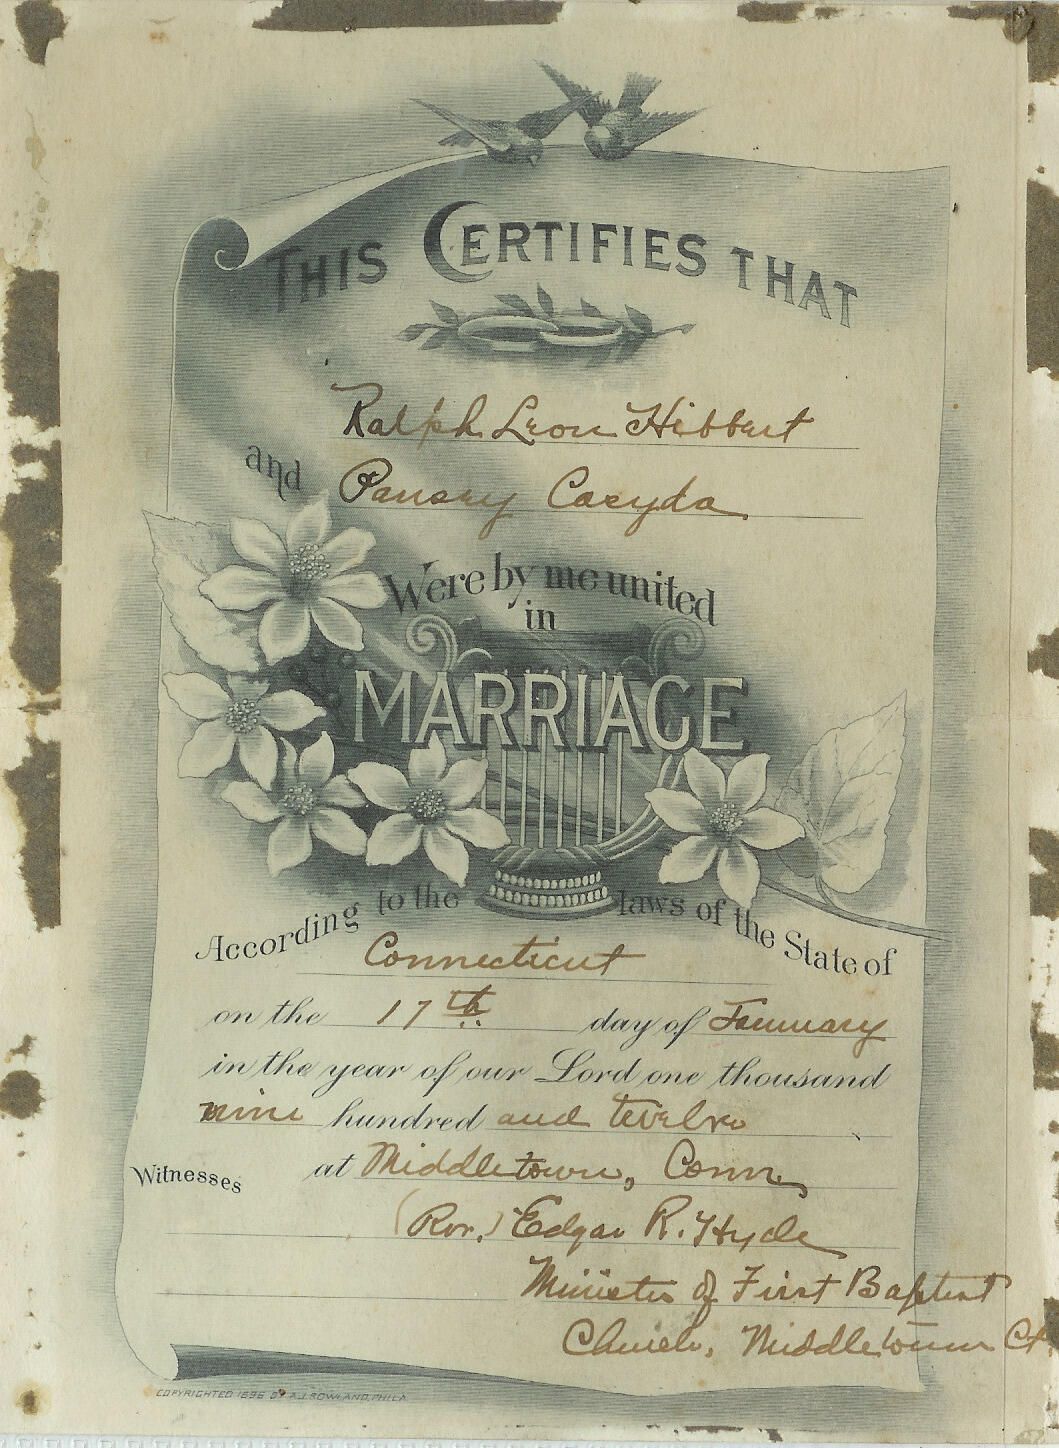 THIS CERTIFIES THAT
Ralph Leon Hibbert
and Pansey Casyda
Were by me united
in
MARRIAGE
According to the laws of the State of
Connecticut
on the 17th day of January
in the year of our Lord one thousand
nine hundred and twelve
Witnesses at Middletown, Conn.
(Rev.) Edgar R. Hyde
Minister of First Baptist
Church, Middletown Ct.
COPYRIGHTED 1896 BY A.J. ROWLAND, PHILA.